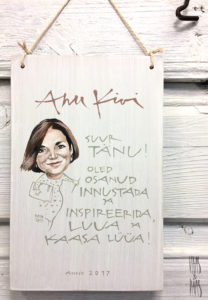 Anu Kivi
SUUR
TÄNU!
OLED
OSANUD
INNUSTADA
JA
INSPIREERIDA,
LUUA JA
KAASA LÜÜA!
ANNO 2017